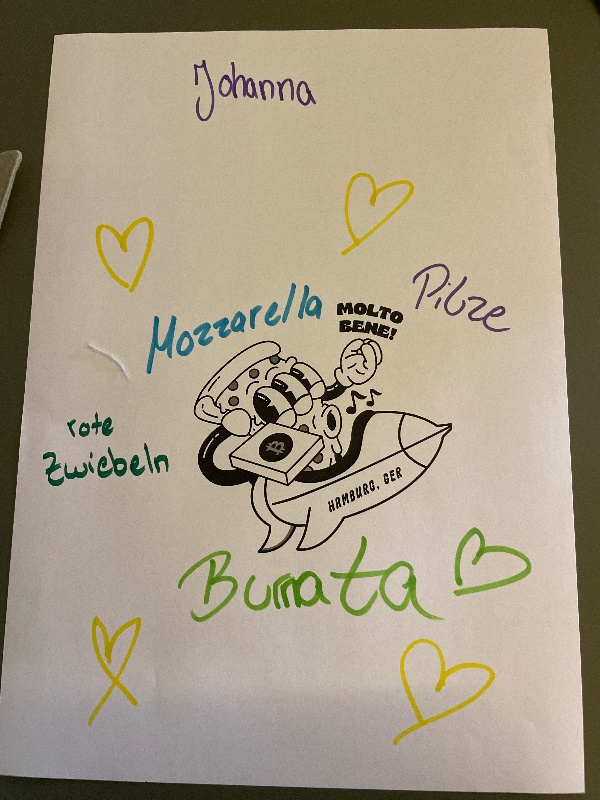 Johanna
Mozzarella
Pilze
MOLTO
BENE!
rote
Zwiebeln
HAMBURG, GER
Burrata